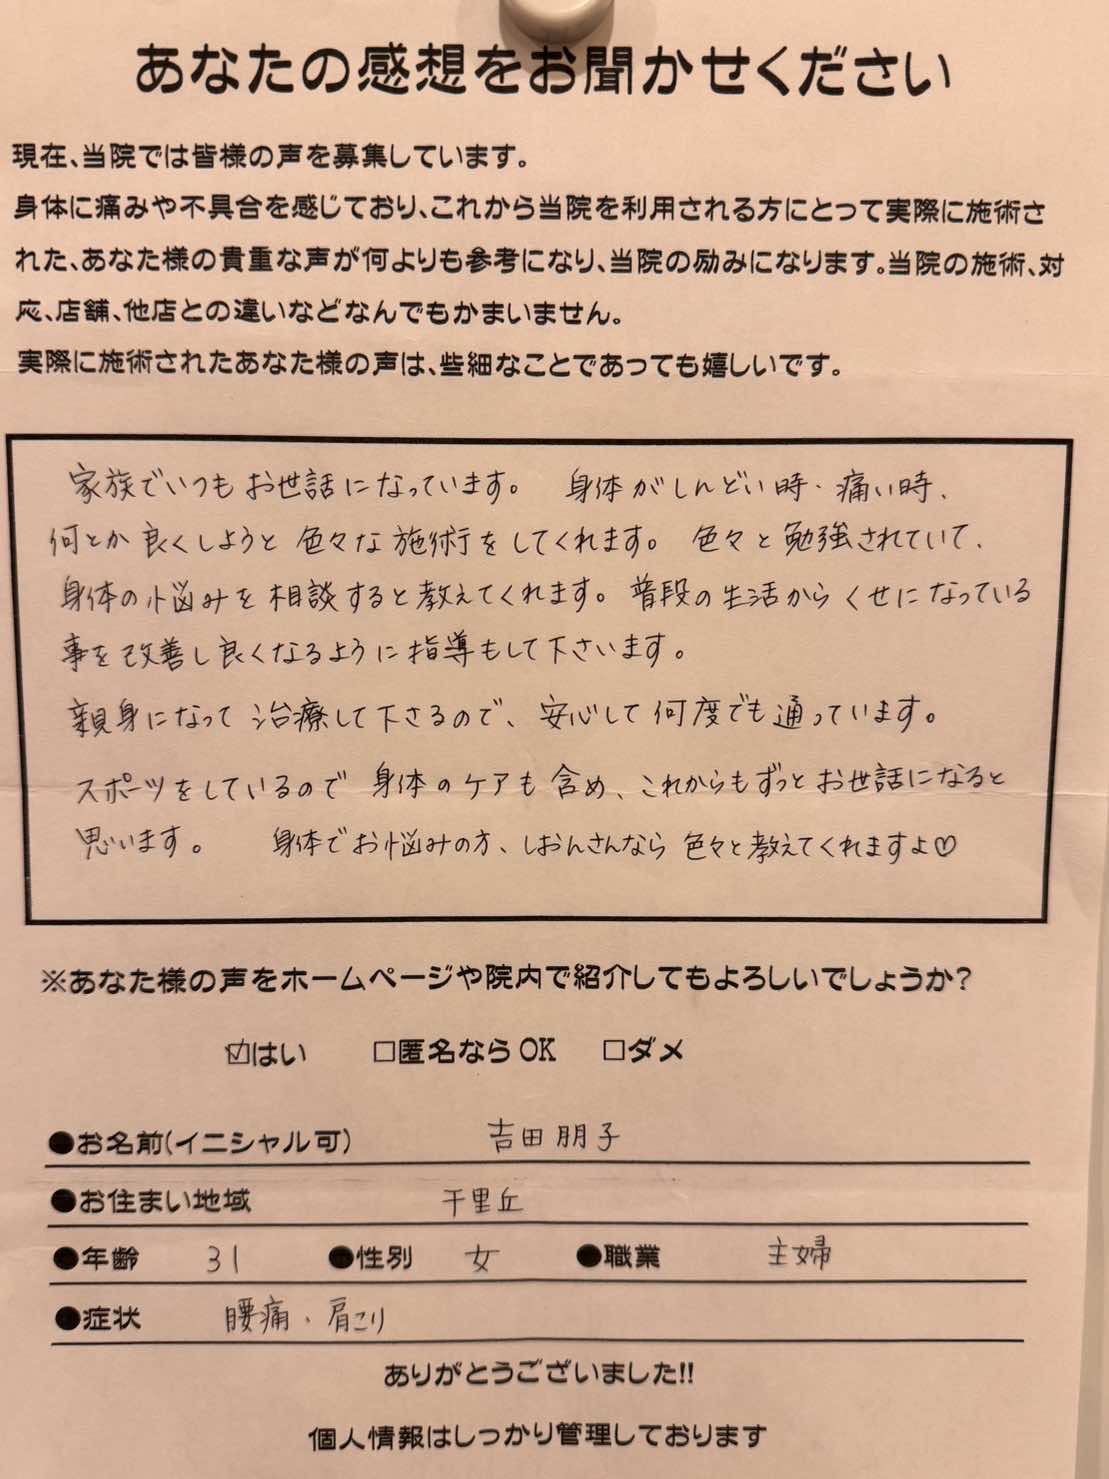 あなたの感想をお聞かせください
現在、当院では皆様の声を募集しています。
身体に痛みや不具合を感じており、これから当院を利用される方にとって実際に施術さ
れた、あなた様の貴重な声が何よりも参考になり、当院の励みになります。当院の施術、対
応、店舗、他店との違いなどなんでもかまいません。
実際に施術されたあなた様の声は、些細なことであっても嬉しいです。
家族でいつもお世話になっています。 身体がしんどい時・痛い時、
何とか良くしようと色々な施術をしてくれます。 色々と勉強されていて、
身体の悩みを相談すると教えてくれます。普段の生活からくせになっている
事を改善し良くなるように指導もして下さいます。
親身になって治療して下さるので、安心して何度でも通っています。
スポーツをしているので身体のケアも含め、これからもずっとお世話になると
思います。 身体でお悩みの方、しおんさんなら色々と教えてくれますよ♡
※あなた様の声をホームページや院内で紹介してもよろしいでしょうか?
☑はい □匿名ならOK □ダメ
●お名前(イニシャル可) 吉田朋子
●お住まい地域 千里丘
●年齢 31 ●性別 女 ●職業 主婦
●症状 腰痛、肩こり
ありがとうございました!!
個人情報はしっかり管理しております